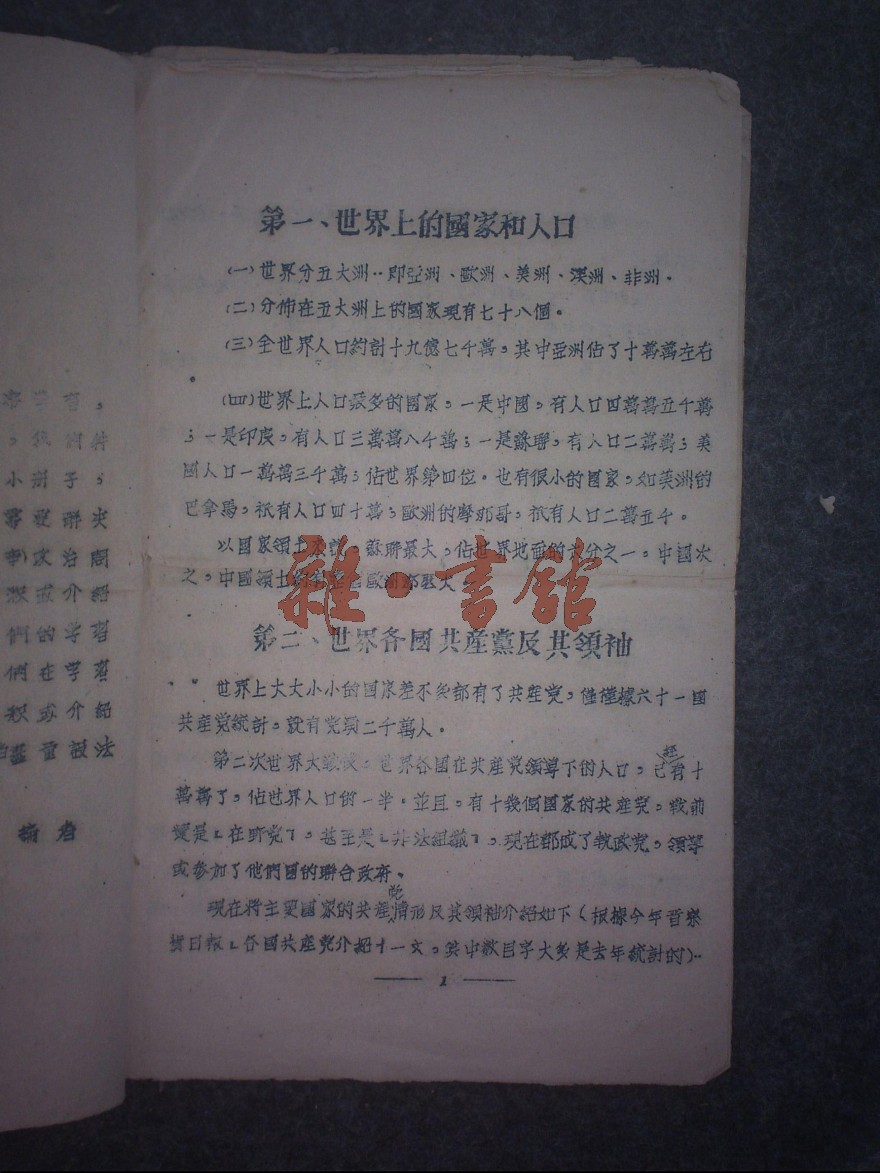 第一、世界上的國家和人口
(一)世界分五大洲：即亞洲、歐洲、美洲、澳洲、非洲。
(二)分佈在五大洲上的國家現有七十八個。
(三)全世界人口約計十九億七千萬，其中亞洲佔了十萬萬左右
。
(四)世界上人口最多的國家，一是中國，有人口四萬萬五千萬
；一是印度，有人口三萬萬八千萬；一是蘇聯，有人口二萬萬；美
國人口一萬萬三千萬；佔世界第四位。也有很小的國家，如美洲的
巴拿馬，祇有人口四十萬；歐洲的摩那哥，祇有人口二萬五千。
以國家領土來說，蘇聯最大，佔世界地面的六分之一。中國次
之，中國領土歐洲還大。
第二、世界各國共產黨及其領袖
世界上大大小小的國家差不多都有了共產党，僅僅據六十一國
共產党統計，就有党員二千萬人。
第二次世界大戰後，世界各國在共產党領導下的人口，已經有十
萬萬了，佔世界人口的一半。並且，有十幾個國家的共產党，戰前
還是「在野党」，甚至是「非法組織」，現在都成了執政党，領導
或參加了他們國的聯合政府。
現在將主要國家的共產党情形及其領袖介紹如下(根據今年晉察
冀日報「各國共產党介紹」一文，其中數目字大多是去年統計的)：
1
小冊子，
政治問
或介紹
們的学習
們在学習
或介紹
設法
編者
雜·書館